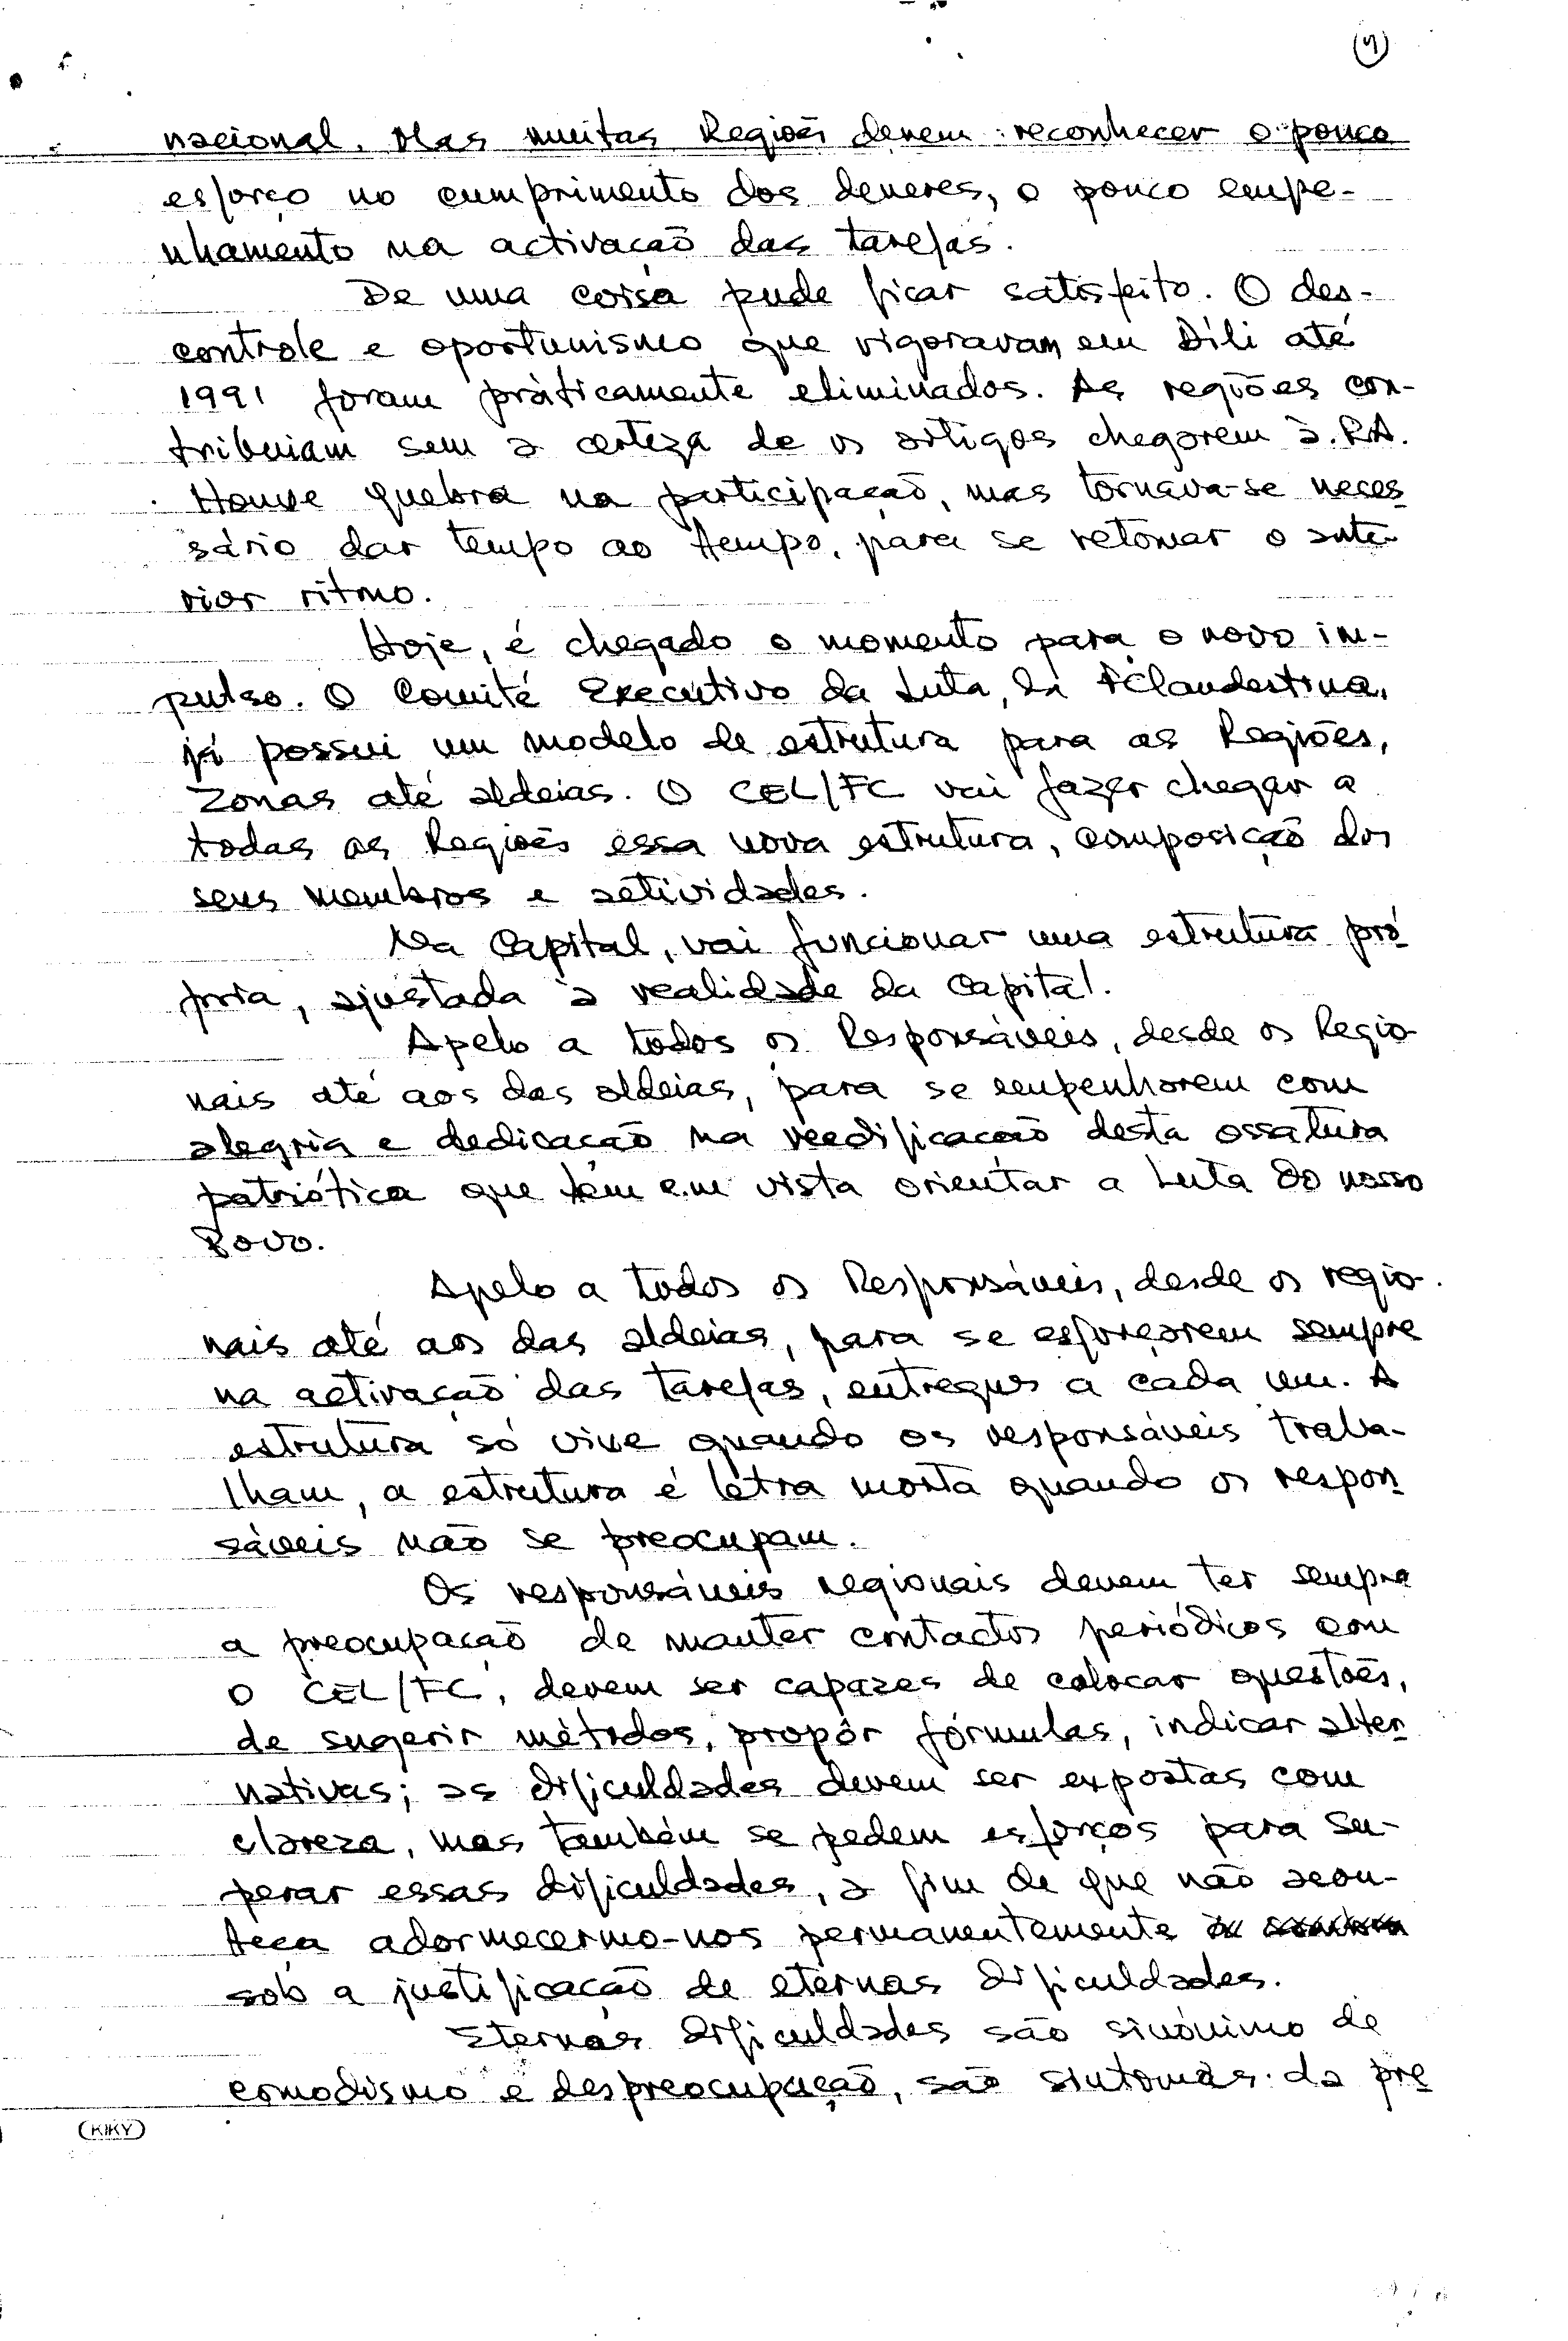 nacional. Mas muitas Regiões devem reconhecer o pouco
esforço no cumprimento dos deveres, o pouco empe-
nhamento na activação das tarefas.
De uma coisa pude ficar satisfeito. O des-
controle e oportunismo que vigoravam em Díli até
1991 foram pràticamente eliminados. As regiões con-
tribuiam sem a certeza de os artigos chegarem à R.A.
Houve quebra na participação, mas tornava-se neces
sário dar tempo ao tempo, para se retomar o ante-
rior ritmo.
Hoje, é chegado o momento para o novo im-
pulso. O Comité Executivo da Luta, da F. Clandestina,
já possui um modelo de estrutura para as Regiões,
Zonas até aldeias. O CEL/FC vai fazer chegar a
todas as Regiões essa nova estrutura, composição dos
seus membros e actividades.
Na Capital, vai funcionar uma estrutura pró
pria, ajustada à realidade da Capital.
Apelo a todos os Responsáveis, desde os Regio-
nais até aos das aldeias, para se empenharem com
alegria e dedicação na reedificação desta ossatura
patriótica que tem em vista orientar a Luta do nosso
Povo.
Apelo a todos os Responsáveis, desde os regio-
nais até aos das aldeias, para se esforçarem sempre
na activação das tarefas, entregues a cada um. A
estrutura só vive quando os responsáveis traba-
lham, a estrutura é letra morta quando os respon
sáveis não se preocupam.
Os responsáveis regionais devem ter sempre
a preocupação de manter contactos periódicos com
o CEL/FC, devem ser capazes de colocar questões,
de sugerir métodos, propôr fórmulas, indicar alter
nativas; as dificuldades devem ser expostas com
clareza, mas também se pedem esforços para su-
perar essas dificuldades, a fim de que não acon-
teça adormecermo-nos permanentemente
sob a justificação de eternas dificuldades.
Eternas dificuldades são sinónimo de
comodismo e despreocupação, são sintomas da pre
(KIKY)